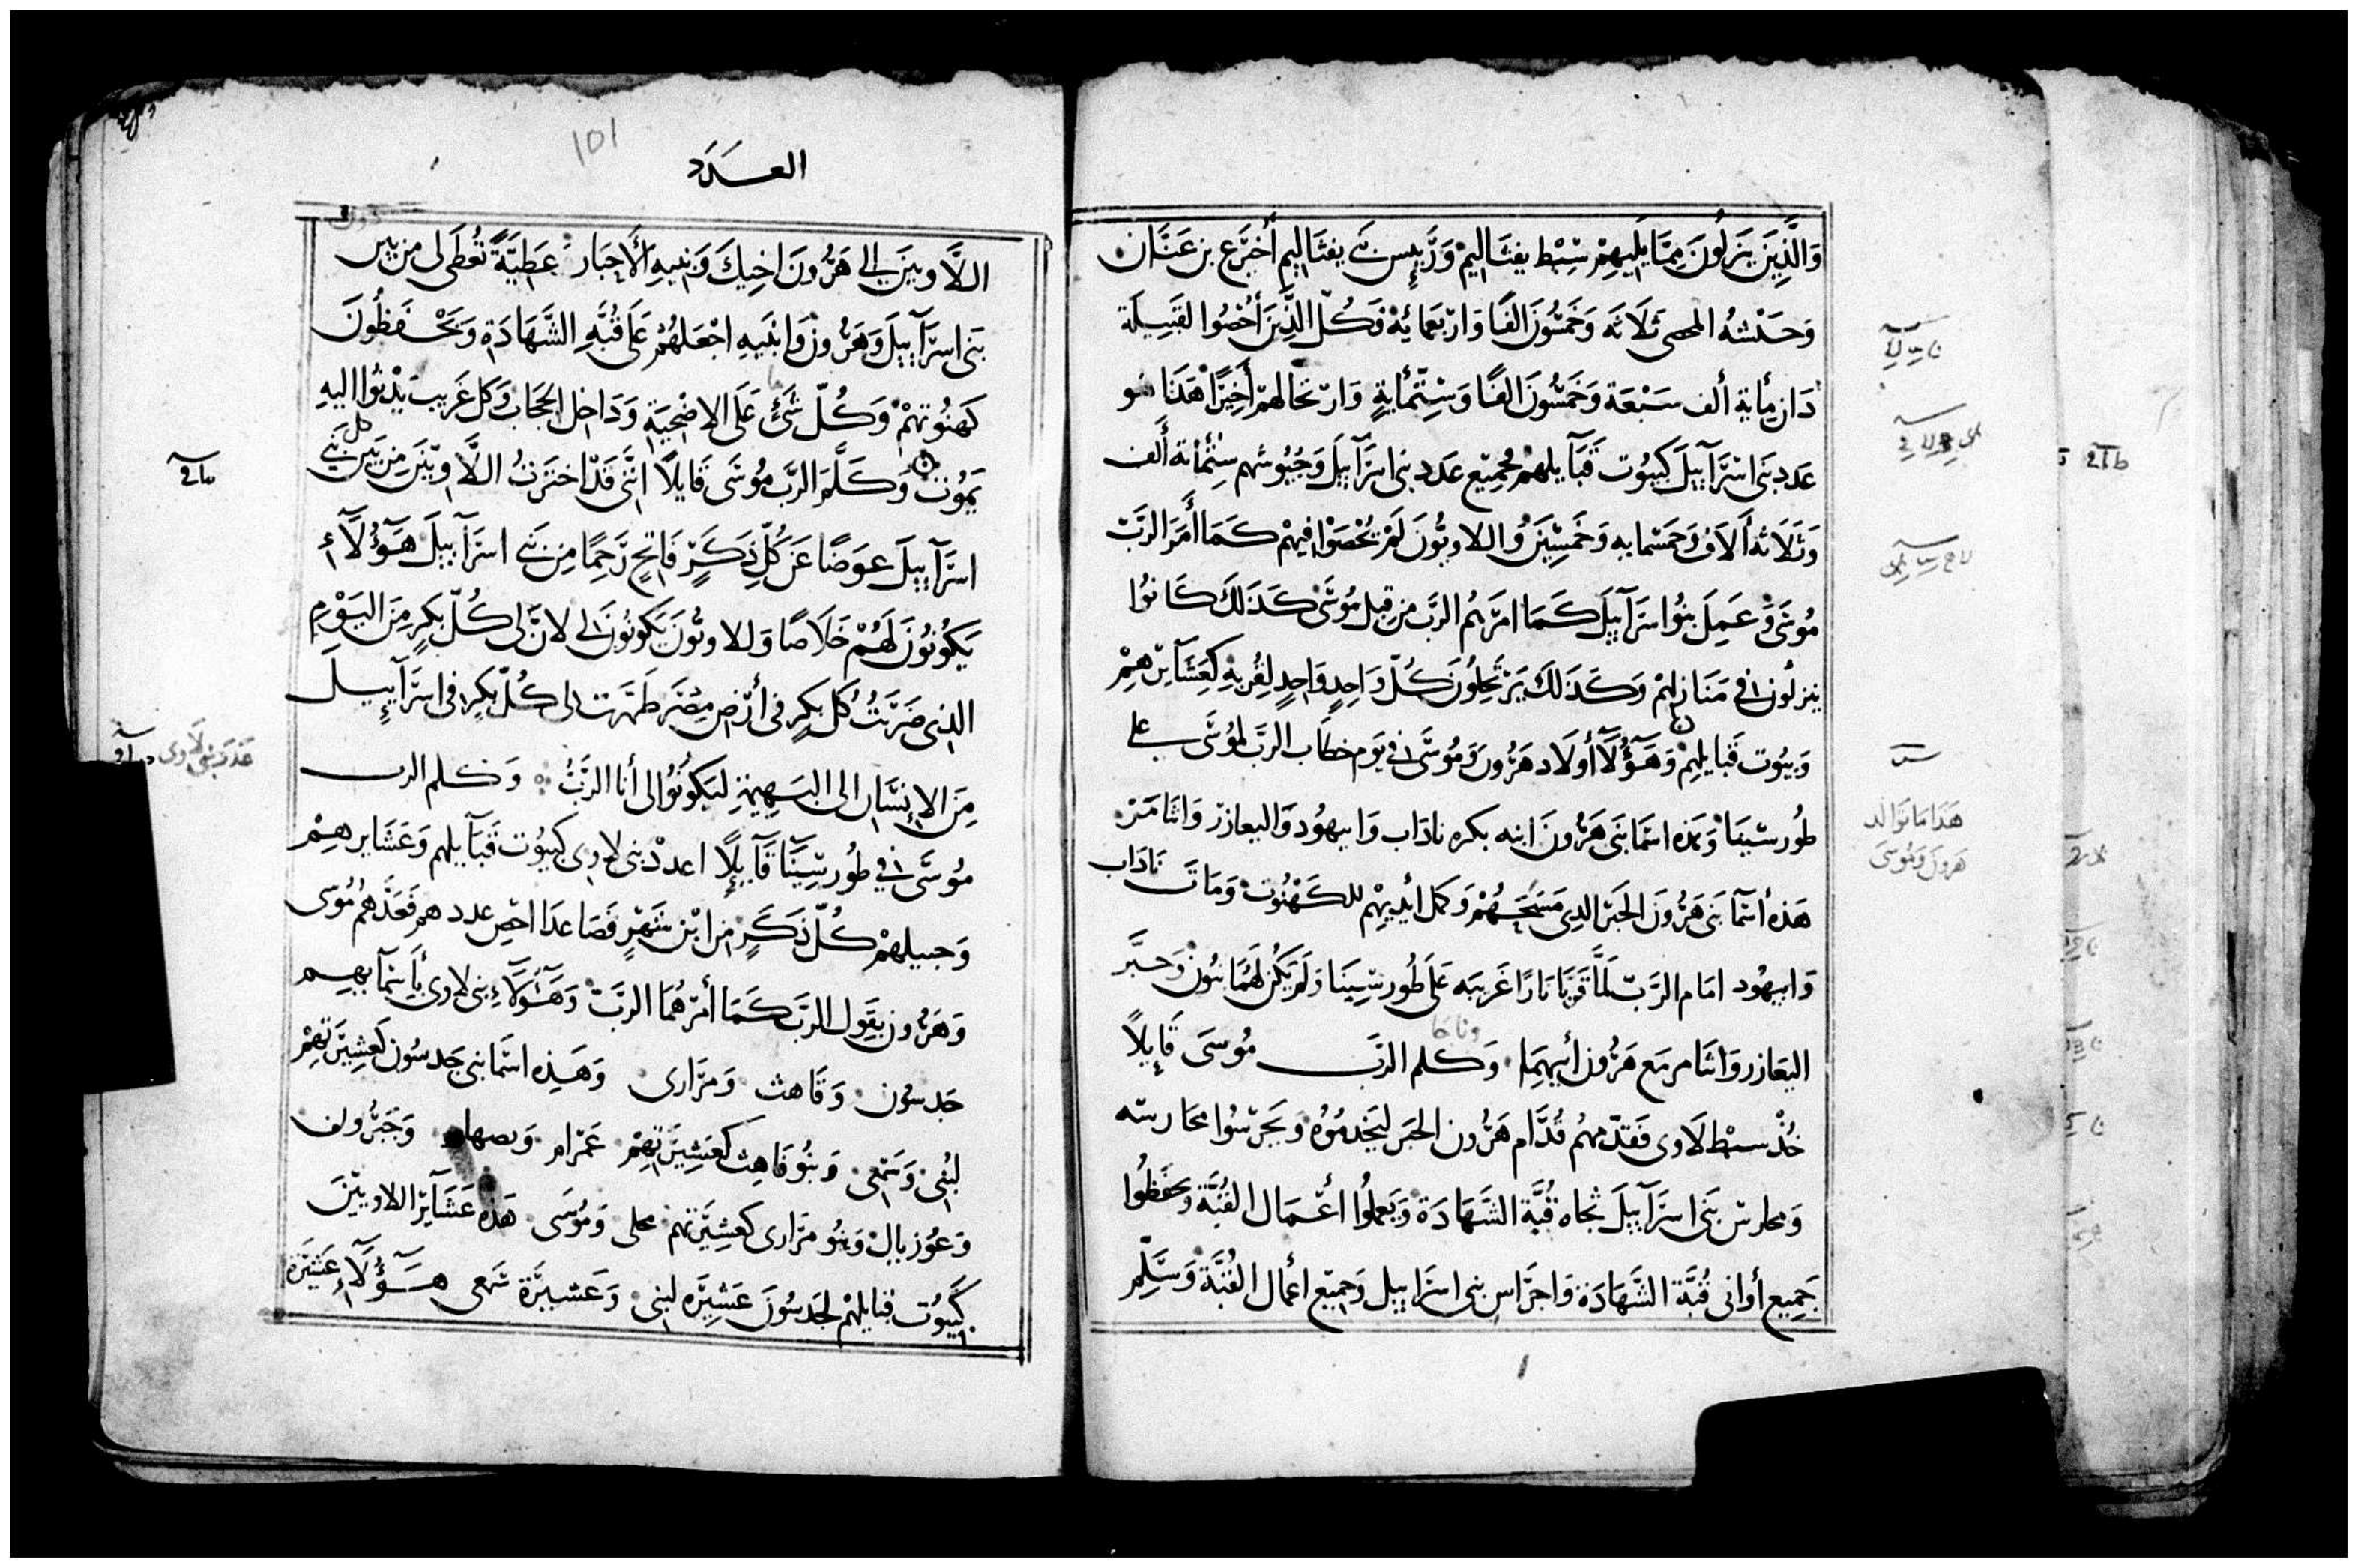 وَالَّذِينَ يَنزلُونَ مِمَّا يَلِيهِمْ سِبْط يفثَاليمْ وَرَّئِيس بَنى يفثَاليم أَخيرَع بن عَنَان
وَحَسْبه المحصى ثلَاثَه وَخَمسُونَ الفًا وَاربَعمائةْ وَكُلّ الَّذِينَ أُحْصُوا لقَبِيلَة
دَان مِأية ألف سَبْعَة وَخَمسُونَ الفًا وَسِتّمأيةٍ وَارتحَالهمْ أَخِيرًا هَذَا هو
عَدد بَنى اسْرَآييلَ كبيُوت قَبَآيلهمْ جمِيْع عَدد بنى اسرَآييلَ وَجُيُوشهم ستْمأئة أَلف
وَثَلَاثة أَلاَف وَخَمسْمايه وَخَمسِينَ وُاللاويُّونَ لَمْ يُحْصَوْا فيهمْ كَمَا أَمَرَ الرَبّ
مُوسَى وَعَمِلَ بَنُوا اسرَآييلَ كَمَا امَرَهُم الرَبّ مِن قِبل مُوسَى كَذَلكَ كَانوُا
ينزلُون فى مَنَازِلهمْ وَكَذَلكَ يَرْتحِلُونَ كُلّ وَاحِدٍ وَاحِدٍ لِقُربهِ كعَشَآيرهِمْ
وَبيُوت قَبايلهِمْ وَهَؤُلَآ أولَاد هَرُونَ وَمُوسَى فى يَوم خطَاب الرَبّ لمُوسَى على
طُور سْينَا وَهَذه اسمَا بَنى هَرُونَ ابنه بكره نادَاب وَابيهُود وَاليعازر وَاثَامَرْ
هَذه أسْمَآ بَنى هَرُونَ الحَبر الذى مَسَحَهُمْ وَكمل أيْدِيهِمْ للكَهْنُوت وَمَاتَ نَادَاب
وَابيهُود امَام الرَبّ لَمَّا قرَّبَا نارًا غَريبَه عَلَى طُور سِينَا وَلَم يَكُن لهُمَا بنُون وَحبَّر
اليَعَازر وَاثَامر مَع هَرُون أبيهِمَا وَكلم الرَبّ مُوسَى قَايِلاً
خُذْ سبْط لَاوى فَقدّمهُم قُدَّام هَرُون الحَبر ليَخدمُوهُ وَيَحرسُوا محَارسه
وَمحارس بَنى اسرَآييلَ تجاه قُبَّة الشَهَادَة وَيَعملُوا أعْمَال القُبَّة وَيحفظُوا
جَمِيع أوانى قُبَّة الشَّهَادَة وَاحرَاس بنى اسرَاييل وَجمِيْع اعمال القُبَّة وَسَلِّم
هَذا ما توالد
هَرون وَمُوسَى
العــدد
101
اللَّاويينَ الى هَرُونَ اخِيكَ وَبَنيهِ الأَحبَار عَطِيَّةً تُعْطَى لى من بين
بَنى اسرَآييلَ وَهَرُون وَابنَيهِ اجْعَلهُمْ عَلَى قُبَّةِ الشَّهَادَة وَيَحْفظُونَ
كَهنُوتَهمْ وَكُلّ شَئ عَلَى الاضْحيَةِ وَدَاخِل الحجَاب وَكل غَريب يَدْنوُا اليهِ
يَمُوت وَكَلَّمَ الرَبّ مُوسَى قَايلاً انّنى قَدْ اختَرتُ اللَّاويّينَ مِن بَين كل بَنى
اسرَآييلَ عوَضًا عَن كُلّ ذَكَرٍ فَاتِح رَحِمًا مِن بَنى اسرَآييلَ هَؤُلَآءِ
يَكُونُونَ لَهُمْ خَلَاصًا وَاللاويُّونَ يَكُونُونَ لى لانّ لى كُلّ بكرٍ مِنَ اليَوْمِ
الذى ضَرَبْتُ كُل بكرٍ فى أرْضِ مِصْرَ طَهّرَت لى كُلّ بكرٍ فى اسرَآييلَ
مِنَ الإنسَان الى البَهِيمَةِ ليَكُونُوُا لى أنا الرَبُّ وَكلم الرب
مُوسَى فى طُور سِينَا قَايلًا اعددْ بنى لاوى كبيُوت قَبَآيلهم وَعَشَايرهِمْ
وَجبيلهمْ كُلّ ذَكَرٍ مِن ابْن شَهْرٍ فَصَاعدَا احْصِ عددهم فَعَدَّهُمْ مُوُسى
وَهَرُون بقَول الرَبّ كَمَا أمَرْهُمَا الرَبّ وَهَؤُلَآءِ بنى لاوى بأَسْمآيهِم
جَدسُون وَقَاهث وَمرَارى وَهَذِه اسمَا بنى جَدسُون كعَشِيرَتهِمْ
لبْنى وَسَمْعى وَبنُو قَاهث كعَشِيرَتهِمْ عَمْرام وَيصهار وَحَبْرُون
وَعُوزيال وَبنُو مرَارى كعشِيَرتهم محلى وَمُوسَى هَذه عَشَآيرَ اللاويِّينَ
كبيُوت قبَايلهِمْ لجَدسُونَ عَشِيرَه لبنى وَعَشيرَة شَمعى هَؤُلَآءِ عَشيَرَة
عَدد بنى لَاوى